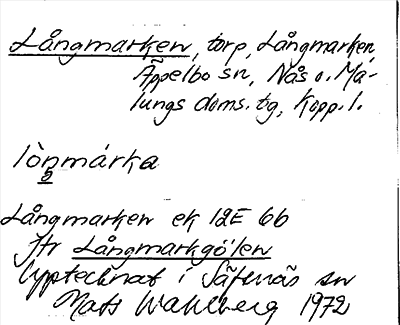 Långmarken, torp, Långmarken,
Äppelbo sn, Nås o. Ma-
lungs doms. tg, Kopp. l.
lònmárka
2
Långmarken ek 12E 6b
Jfr Långmarkgölen
Upptecknat i Säfsnäs sn
Mats Wahlberg 1972